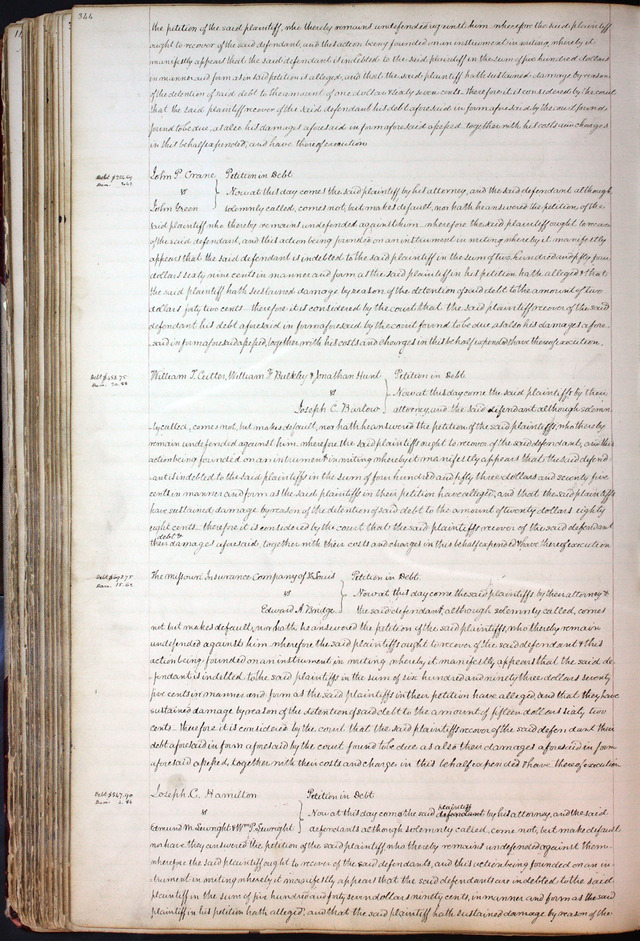 344
the petition of the said plaintiff, who thereby remains undefended against him wherefore the said plaintiff
ought to recover of the said defendant, and this action being founded on an instrument in writing, whereby it
manifestly appears that the said defendant is indebted to the said plaintiff in the sum of five hundred dollars
in manner and form as in said petition is alleged, and that the said plaintiff hath sustained damage by reason
of the detention of said debt to the amount of one dollar & sixty seven cents. therefore it is considered by the court
that the said plaintiff recover of the said defendant his debt aforesaid in form aforesaid by the court found
found to be due, as also his damages aforesaid in form aforesaid assessed, together with his costs and charges
in this behalf expended, and have thereof execution
John P. Crane Petition in Debt
vs Now at this day comes the said plaintiff by his attorney, and the said defendant although
John Green solemnly called, comes not, but makes default, nor hath he answered the petition of the
said plaintiff who thereby remains undefended against him. wherefore the said plaintiff ought to recover
of the said defendant, and this action being founded on an instrument in writing whereby it manifestly
appears that the said defendant is indebted to the said plaintiff in the sum of two hundred and fifty five
dollars sixty nine cents in manner and form as the said plaintiff in his petition hath alleged & that
the said plaintiff hath sustained damage by reason of the detention of said debt to the amount of two
dollars forty two cents therefore it is considered by the court that the said plaintiff recover of the said
defendant his debt aforesaid in form aforesaid by the court found to be due, as also his damages afore-
said in form aforesaid assessed, together with his costs and charges in this behalf expended & have thereof execution.
Debt $453.75
Dam. 20.88
William T. Cutter, William F. Bulkley & Jonathan Hunt Petition in Debt
vs Now at this day come the said plaintiffs by their
Joseph C. Barlow attorney, and the said defendant although solemn
ly called, comes not, but makes default, nor hath he answered the petition of the said plaintiffs, who thereby
remain undefended against him, wherefore the said plaintiffs ought to recover of the said defendant, and this
action being founded on an instrument in writing whereby it manifestly appears that the said defend
ant is indebted to the said plaintiffs in the sum of four hundred and fifty three dollars and seventy five
cents in manner and form as the said plaintiffs in their petition have alleged, and that the said plaintiffs
have sustained damage by reason of the detention of said debt to the amount of twenty dollars eighty
eight cents. therefore it is considered by the court that the said plaintiffs recover of the said defendant
debt &
their damages aforesaid, together with their costs and charges in this behalf expended & have thereof execution
Debt $693.75
Dam. 15.62
The Missouri Insurance Company of St Louis Petition in Debt.
vs Now at this day come the said plaintiffs by their attorney &
Edward A. Bridge the said defendant, although solemnly called, comes
not but makes default, nor hath he answered the petition of the said plaintiffs, who thereby remain
undefended against him wherefore the said plaintiffs ought to recover of the said defendant & this
action being founded on an instrument in writing, whereby it manifestly appears that the said de-
fendant is indebted to the said plaintiffs in the sum of six hundred and ninety three dollars seventy
five cents in manner and form as the said plaintiffs in their petition have alleged, and that they have
sustained damage by reason of the detention of said debt to the amount of fifteen dollars sixty two
cents therefore it is considered by the court that the said plaintiffs recover of the said defendant their
debt aforesaid in form aforesaid by the court found to be due as also their damages aforesaid in form
aforesaid assessed, together with their costs and charges in this behalf expended & have thereof execution
Debt $547.90
Joseph C. Hamilton Petition in Debt
plaintiff
vs Now at this day comes the said defendant by his attorney, and the said
Edmund M. Sewright & Wm P. Sewright defendants although solemnly called, come not, but make default
no have they answered the petition of the said plaintiff who thereby remains undefended against them
wherefore the said plaintiff ought to recover of the said defendants, and this action being founded on an in-
strument in writing whereby it manifestly appears that the said defendants are indebted to the said
plaintiff in the sum of five hundred and forty seven dollars ninety cents, in manner and form as the said
plaintiff in his petition hath alleged, and that the said plaintiff hath sustained damage by reason of the